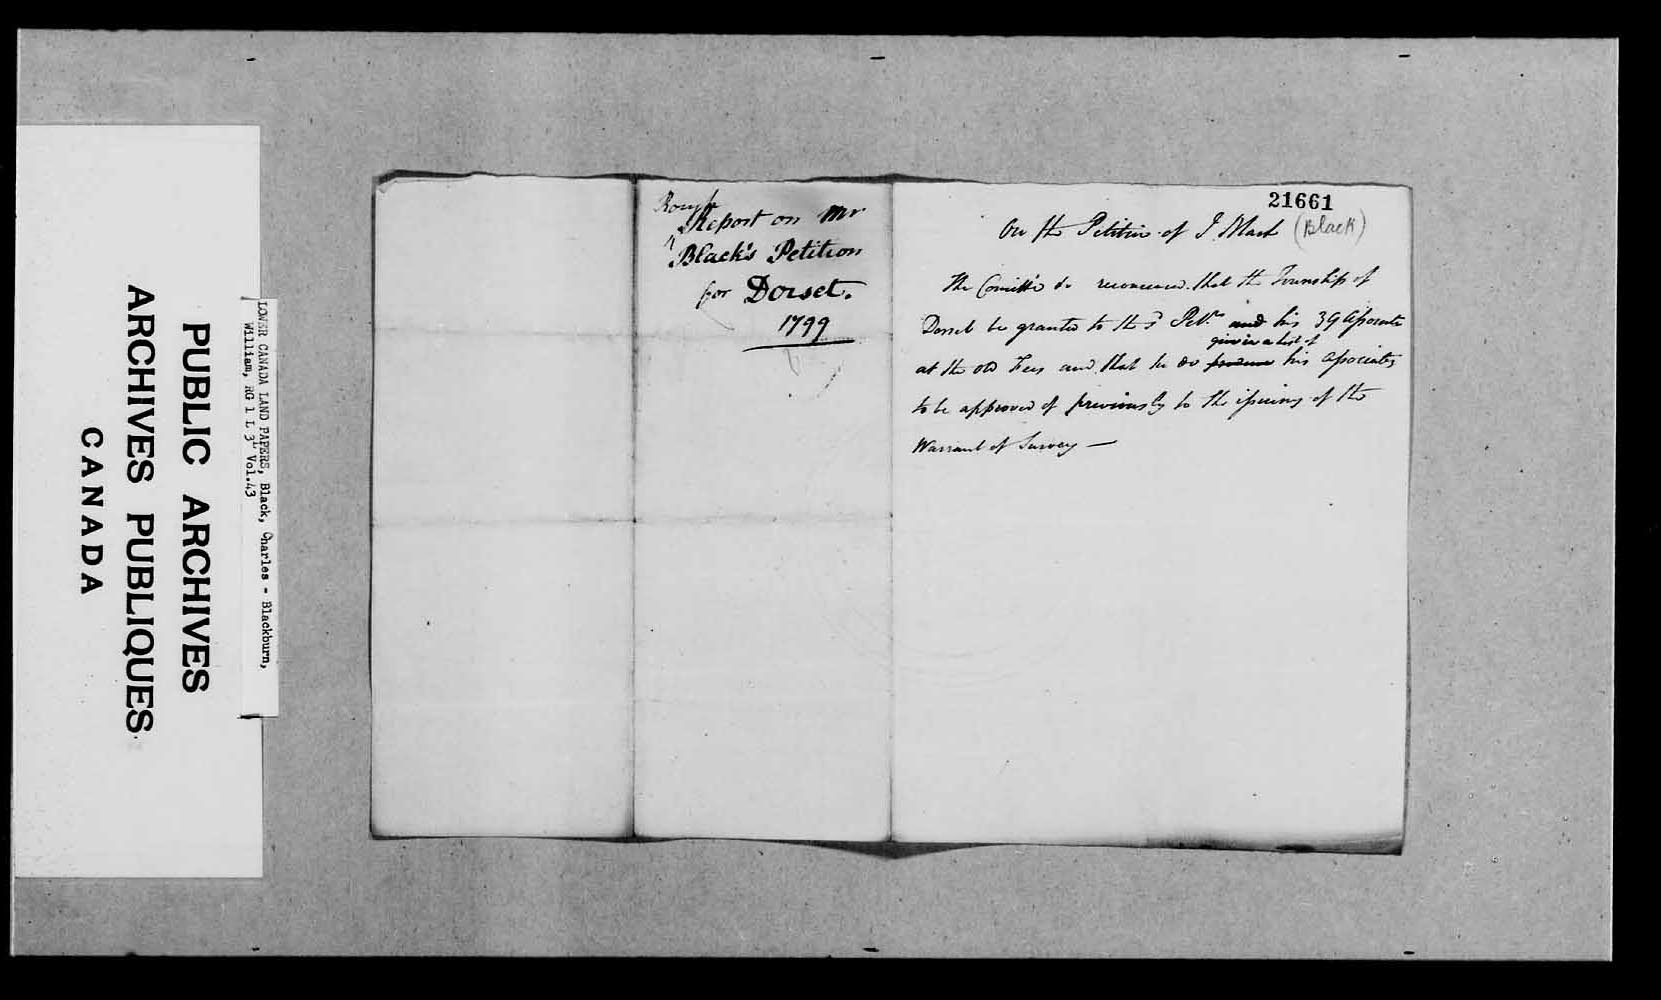 PUBLIC ARCHIVES
ARCHIVES PUBLIQUES
CANADA
LOWER CANADA LAND PAPERS, Black, Charles - Blackburn,
William, RG 1 L 3L Vol.43
Rough
Report on Mr
Black's Petition
for Dorset.
1799
21661
On the Petition of J. Black (Black)
The Committe do recommend that the Township of
Dorset be granted to the sd Petr. and his 39 Associates
give in a list of
at the old Fees and that he do produce his associates
to be approved of previously to the issuing of the
Warrant of Survey —